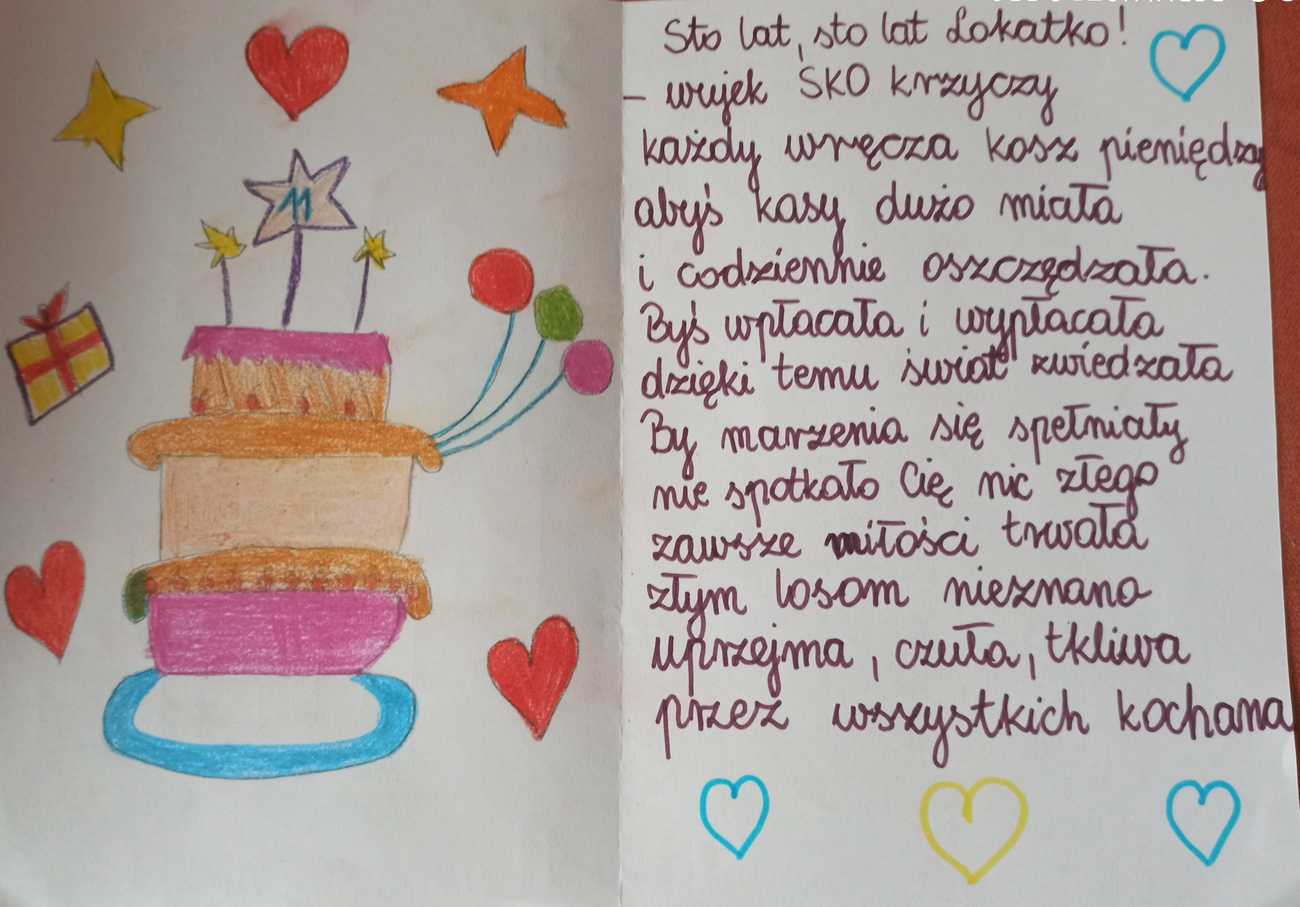 11
Sto lat, sto lat Lokatko!
- wujek SKO krzyczy
każdy wręcza kosz pieniędzy
abyś kasy dużo miała
i codziennie oszczędzała.
Byś wpłacała i wypłacała
dzięki temu świat zwiedzała
By marzenia się spełniały
nie spotkało Cię nic złego
zawsze miłości trwała
złym losom nieznana
uprzejma, czuła, tkliwa
przez wszystkich kochana